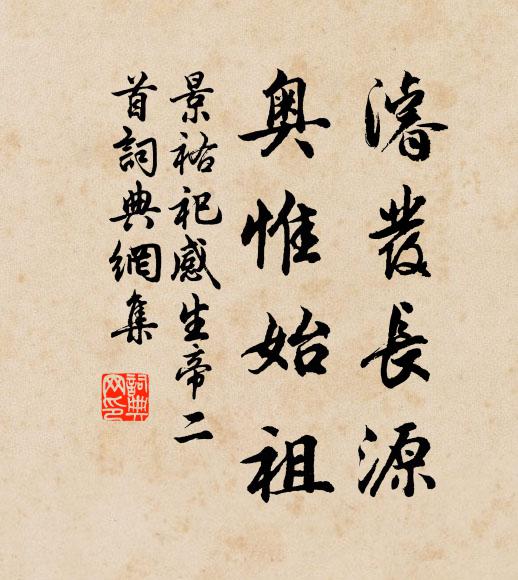 濬發長源
奧惟始祖
景祐祀感生帝二
首詞典網集
詞典
网印